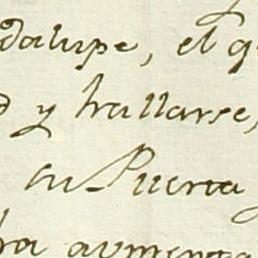 dalupe, el q
y hallarse,
su Puerta
ha aumenta